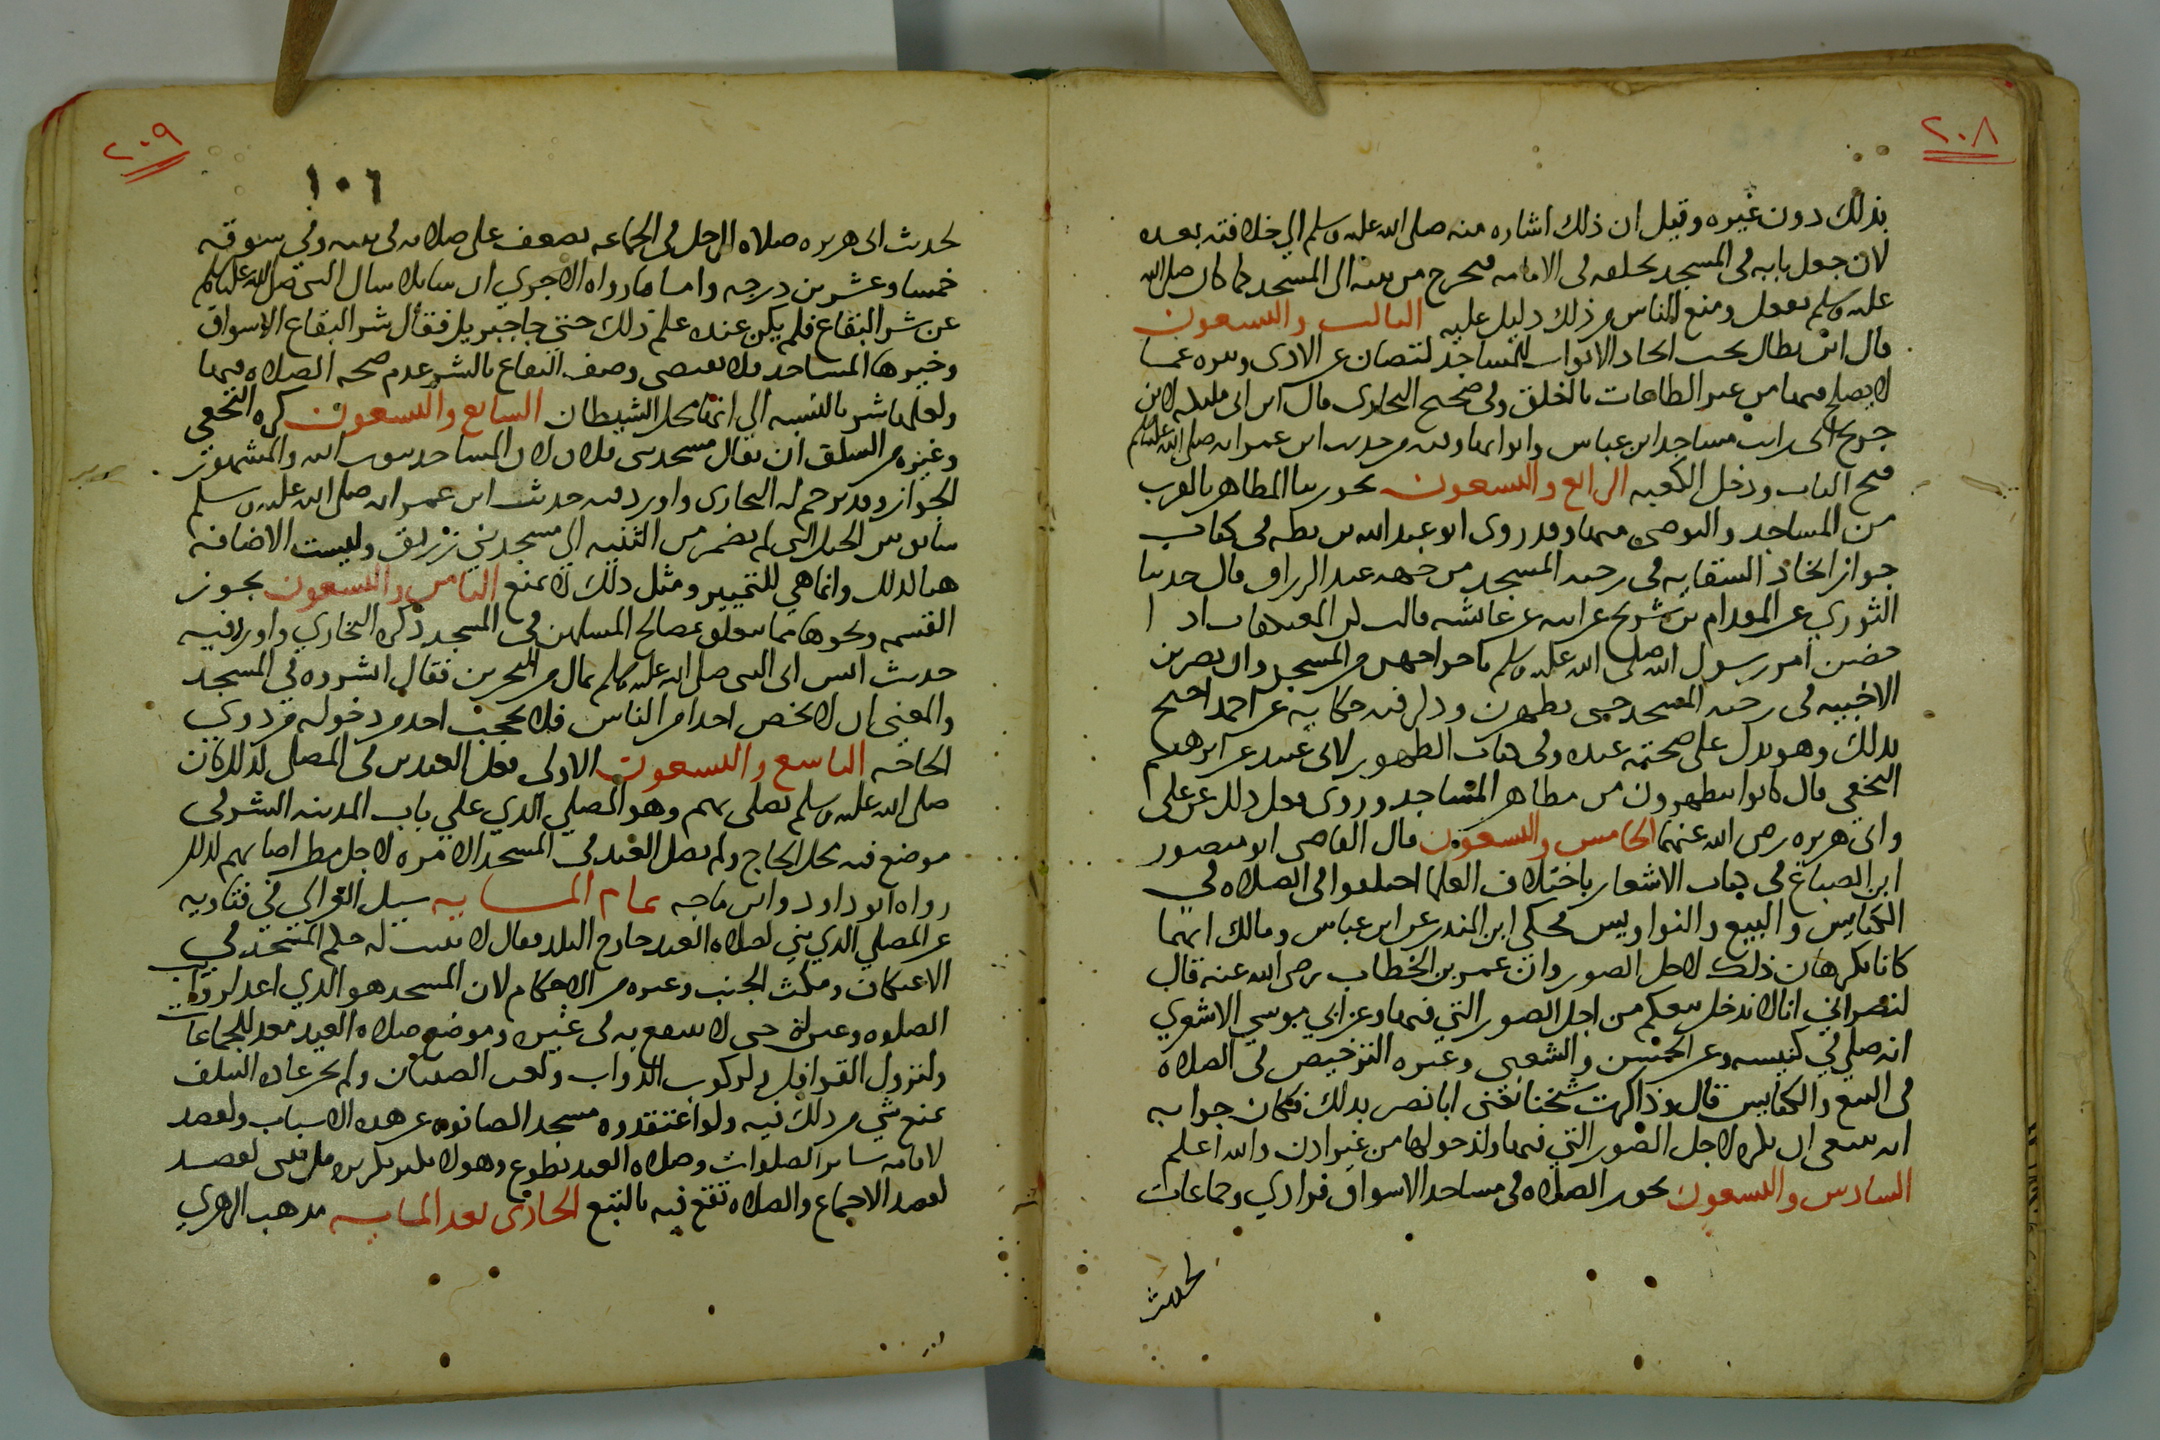 ٢٠٨
بذلك دون غيره وقيل ان ذلك اشاره منه صلى الله عليه وسلم الي خلافته بعده
لان جعل بابه في المسجد يخلفه في الامامه فيخرج من بيته الى المسجد كما كان صلى الله
عليه وسلم يفعل ومنع الناس من ذلك دليل عليه الثالث والتسعون
قال ابن بطال يجب اتخاذ الابواب للمساجد لتصان عن الاذى وتنزه عما
لا يصلح فيها من غير الطاعات بالغلق وفي صحيح البخارى قال ابن ابى مليكه لابن
جريج لو رايت مساجد ابن عباس وابوابها وفيه من حديث ابن عمر انه صلى الله عليه وسلم
فتح الباب ودخل الكعبه الرابع والتسعون يجوز بنا المطاهر بالقرب
من المساجد والتوضى فيها وقد روى ابو عبد الله بن بطه فى كتاب
جواز اتخاذ السقايه في رحبه المسجد من جهه عبد الرزاق قال حدثنا
الثوري عن المقدام بن شريح عن ابيه عن عائشه قالت كن المعتكفات اذا
حضن امر رسول الله صلى الله عليه وسلم باخراجهن من المسجد وان يضربن
الاخبيه في رحبه المسجد حتى يطهرن وذكر فيه حكايه عن احمد احتج
بذلك وهو يدل على صحته عنده وفي كتاب الطهور لابي عبيد عن ابرهيم
النخعي قال كانوا يتطهرون من مطاهر المساجد وروى فعل ذلك عن على
وابى هريره رضى الله عنهما الخامس والتسعون قال القاضى ابو منصور
ابن الصباغ في كتاب الاشعار باختلاف العلما اختلفوا في الصلاه في
الكنايس والبيع والنواويس فحكي ابن المنذر عن ابن عباس ومالك انهما
كانا يكرهان ذلك لاجل الصور وان عمر بن الخطاب رضى الله عنه قال
لنصراني انا لا ندخل بيعكم من اجل الصور التي فيها وعن ابي موسي الاشعري
انه صلي في كنيسه وعن الحسن والشعبى وغيره الترخيص في الصلاه
في البيع والكنايس قال وذاكرت شيخنا يعنى ابا نصر بذلك فكان جوابه
انه ينبغى ان يكره لاجل الصور التي فيها ولدخولها من غير اذن والله اعلم
السادس والتسعون يجوز الصلاه في مساجد الاسواق فرادي وجماعات
لحديث
٢٠٩
١٠٦
لحديث ابى هريره صلاه الرجل في الجماعه تضعف على صلاته في بيته وفي سوقه
خمسا وعشرين درجه واما ما رواه الاجري ان سايلا سال النبى صلى الله عليه وسلم
عن شر البقاع فلم يكن عنده علم ذلك حتى جا جبريل فقال شر البقاع الاسواق
وخيرها المساجد فلا يقتضى وصف البقاع بالشر عدم صحه الصلاه فيها
ولعلها شر بالنسبه الي انها محل الشيطان السابع والتسعون كره النخعي
وغيره من السلف ان يقال مسجد بنى فلان لان المساجد بيوت الله والمشهور
الجواز وقد ترجم له البخارى واورد فيه حديث ابن عمر انه صلى الله عليه وسلم
سابق بين الخيل التى لم تضمر من الثنيه الي مسجد بني زريق وليست الاضافه
هنا لذلك وانما هي للتمييز ومثل ذلك لا يمنع الثامن والتسعون يجوز
القسمه ونحوها مما يتعلق بمصالح المسلمين في المسجد ذكره البخاري واورد فيه
حديث انس اتى النبى صلى الله عليه وسلم بمال من البحرين فقال انثروه في المسجد
والمعني ان لا يخص احدا من الناس فلا يحجب احد من دخوله من ذوي
الحاجه التاسع والتسعون الاولى فعل العيدين في المصلى كذلك كان
صلى الله عليه وسلم يصلى بهم وهو المصلى الذي علي باب المدينه الشرقي
موضع فيه محل الحاج ولم يصل العيد في المسجد الا مره لاجل مطر اصابهم كذلك
رواه ابو داود وابن ماجه تمام المايه سيل الغزالي في فتاويه
عن المصلي الذي بني لصلاه العيد خارج البلد فقال لا يثبت له حكم المسجد في
الاعتكاف ومكث الجنب وغيره من الاحكام لان المسجد هو الذي اعد لرواتب
الصلوه وعين لها حتى لا ينتفع به في غيره وموضع صلاه العيد معد للجماعات
ولنزول القوافل ولركوب الدواب ولعب الصبيان ولم تجر عاده السلف
بمنع شي من ذلك فيه ولو اعتقدوه مسجدا لصانوه عن هذه الاسباب ولقصد
لاقامه ساير الصلوات وصلاه العيد تطوع وهو لا يكثر تكرره بل يبنى لقصد
لقصد الاجتماع والصلاه تقع فيه بالتبع الحادى بعد المايه مذهب الزهري